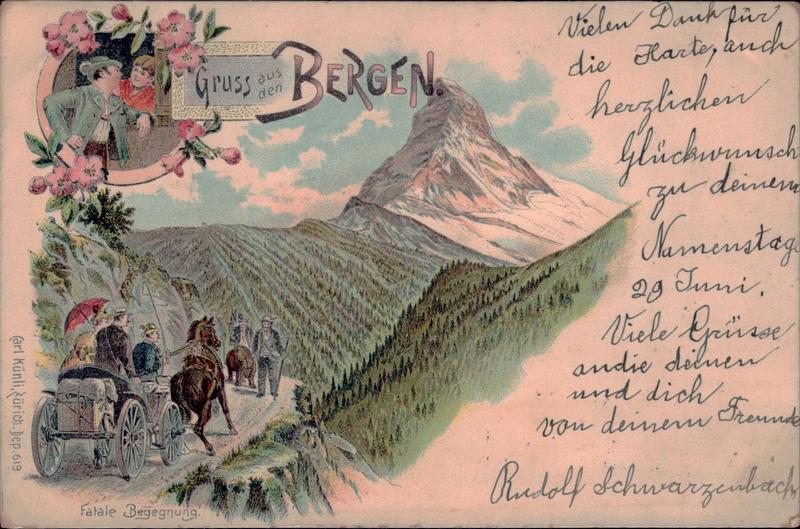 Gruss aus den BERGEN.
Vielen Dank für
die Karte, auch
herzlichen
Glückwunsch
zu deinem
Namenstage
29 Juni.
Viele Grüsse
an die deinen
und dich
von deinem Freunde
Rudolf Schwarzenbach
Carl Künzli, Zürich, Dep. 619
Fatale Begegnung.